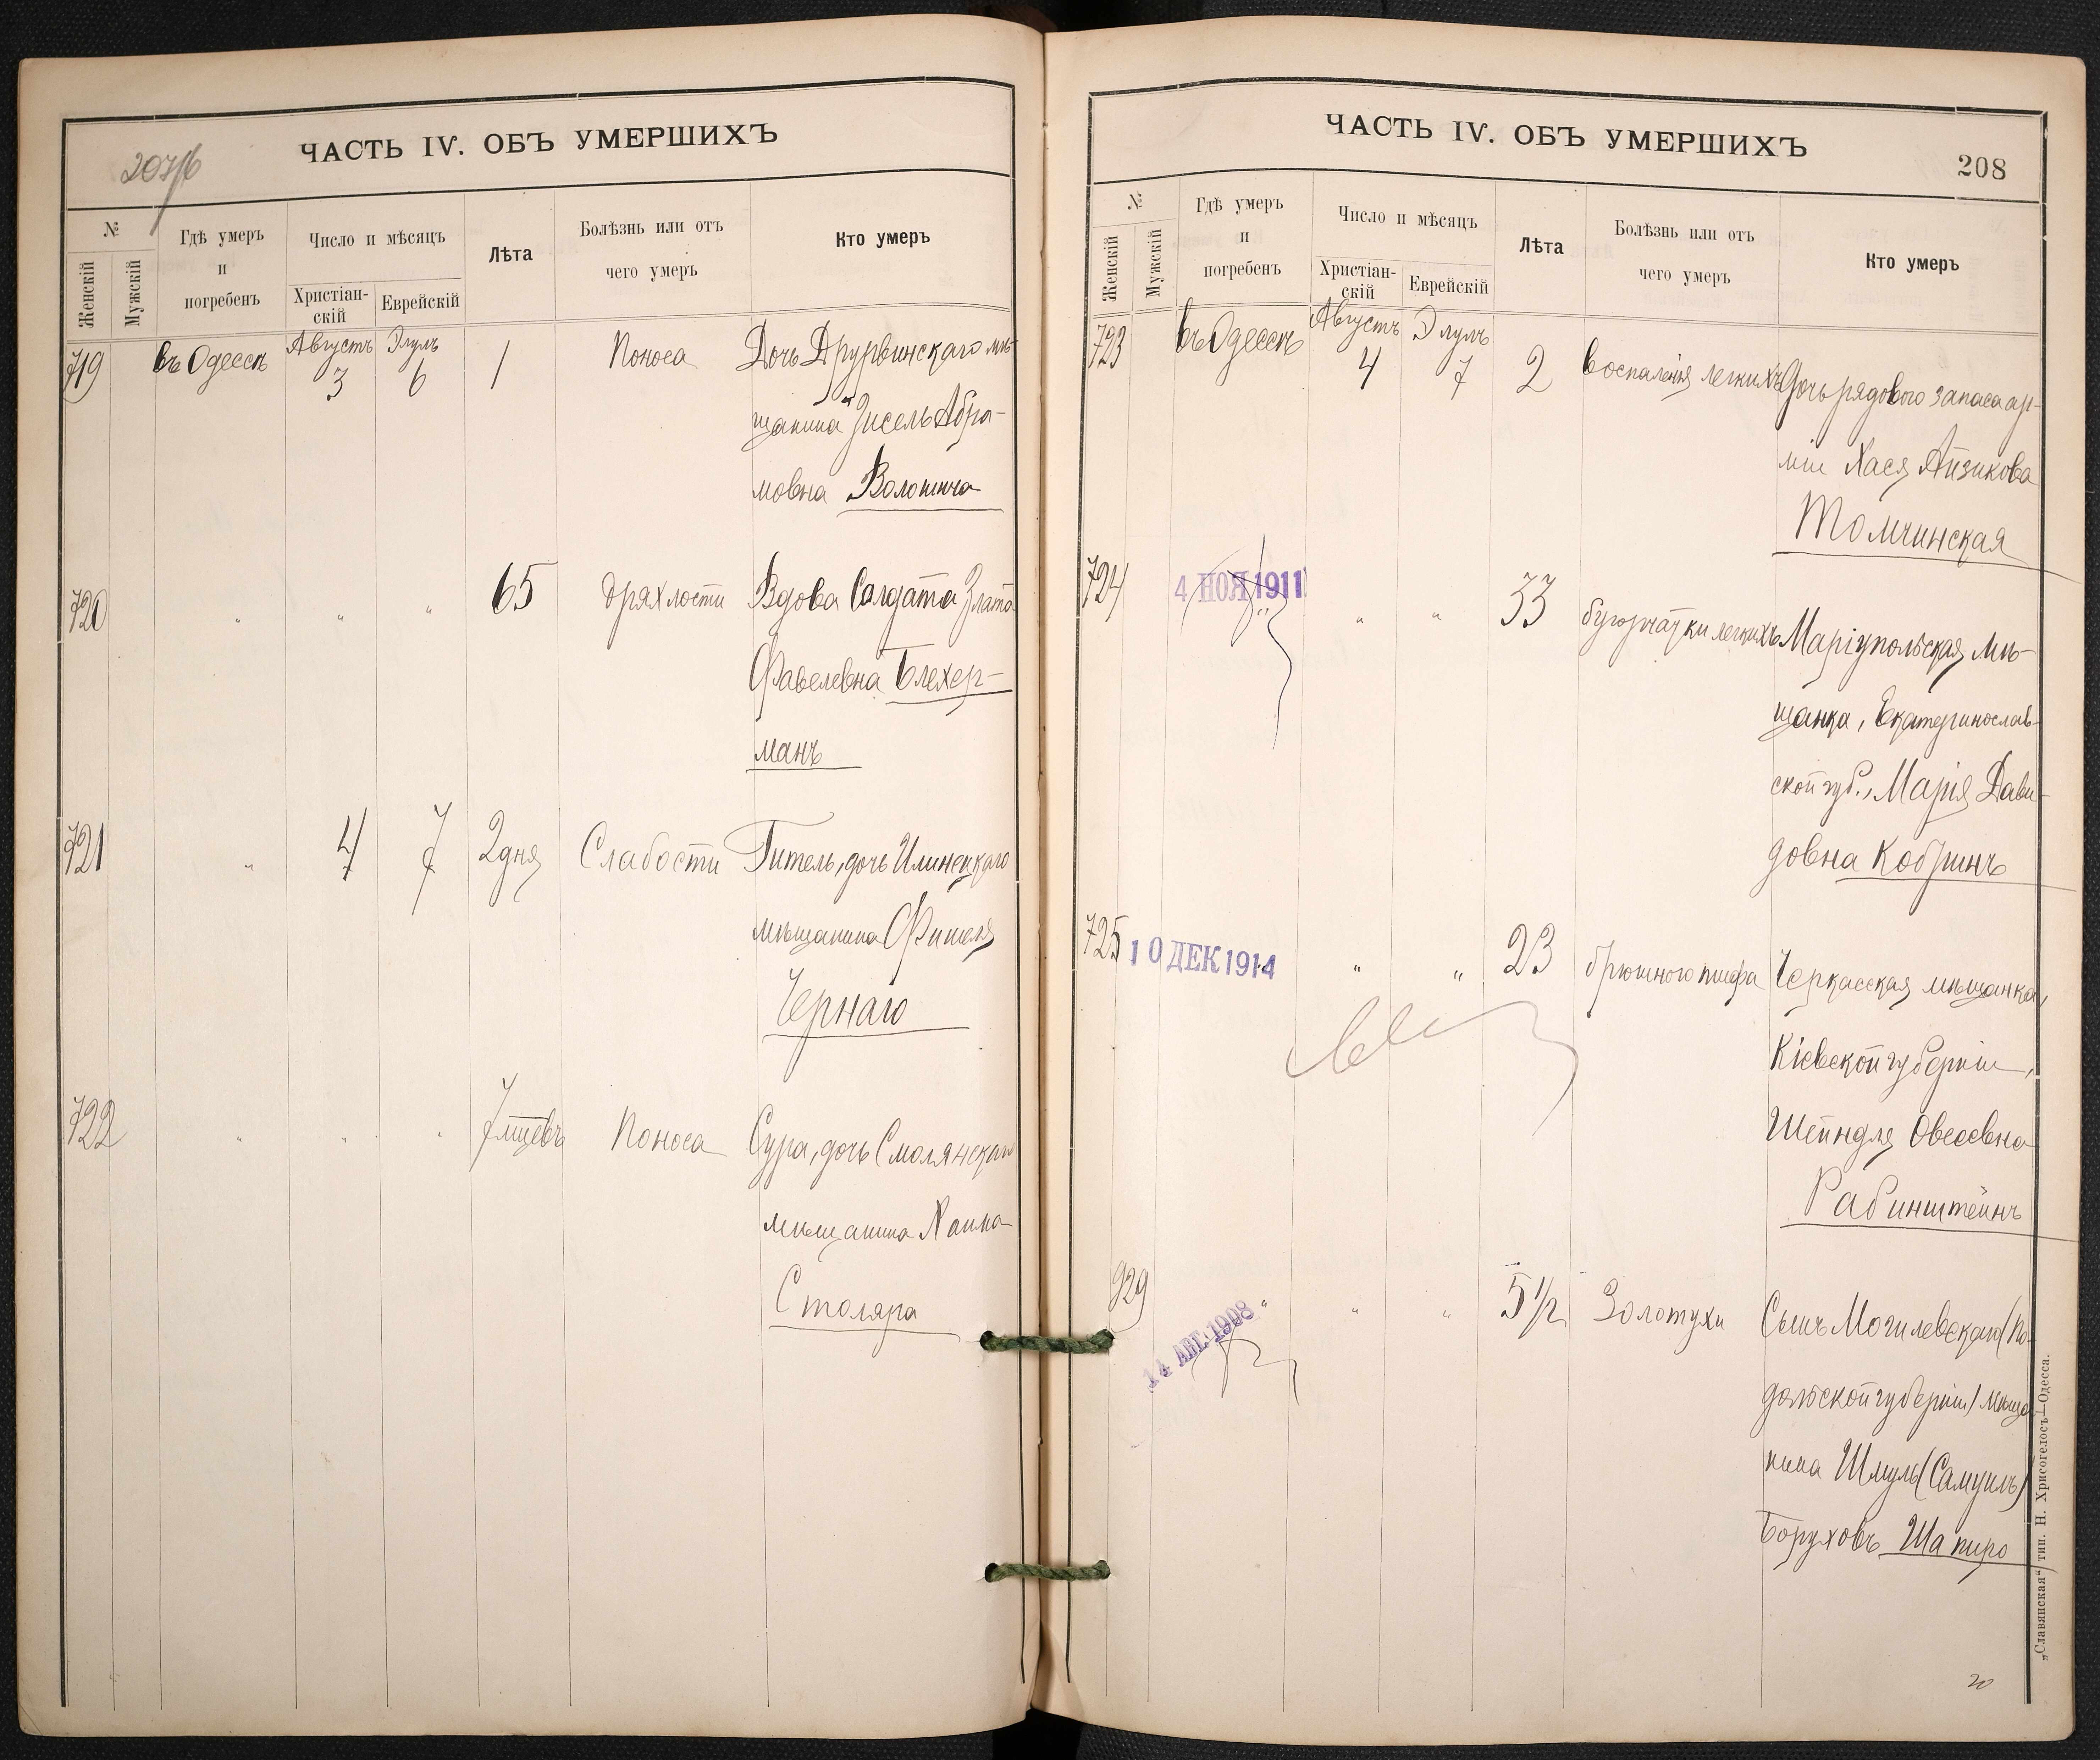 207/б
ЧАСТЬ IV. ОБЪ УМЕРШИХЪ
№
Женскій
Мужскій
Гдѣ умеръ
и
погребенъ
Число и мѣсяцъ
Христіан-
скій
Еврейскій
Лѣта
Болѣзнь или отъ
чего умеръ
Кто умеръ
719 въ Одессѣ Августъ 3 Элулъ 6 1 Поноса Дочь мѣ-
щанина Зисель Абра-
мовна Волошина
720 " " " 65 дряхлости Вдова Солдата Злата
Файвелевна Блехер-
манъ
721 " 4 7 2 дня Слабости Гитель, дочь Илинецкаго
мѣщанина Фишеля
Чернаго
722 " " " 7 мцевъ Поноса Сура, дочь Смолянскаго
мѣщанина Хаима
Столяра
ЧАСТЬ IV. ОБЪ УМЕРШИХЪ
208
№
Женскій
Мужскій
Гдѣ умеръ
и
погребенъ
Число и мѣсяцъ
Христіан-
скій
Еврейскій
Лѣта
Болѣзнь или отъ
чего умеръ
Кто умеръ
723 въ Одессѣ Августъ 4 Элулъ 7 2 воспаленія легкихъ Дочь рядового запаса ар-
міи Хася Айзикова
Томчинская
724 4 НОЯ 1911 " " " 33 бугорчатки легкихъ Маріупольская мѣ-
щанка, Екатеринослав-
ской губ., Марія Дави-
довна Кобринъ
725 10 ДЕК 1914 " " 23 брюшного тифа Черкасская мѣщанка,
Кіевской губерніи,
Шейндля Овсеевна
Рабинштейнъ
929 14 АВГ 1908 " " " 5 1/2 Золотухи Сынъ Могилевскаго (По-
дольской губерніи) мѣща-
нина Шмуль (Самуилъ)
Боруховъ Шапиро
20
„Славянская“ тип. Н. Хрисогелосъ—Одесса.